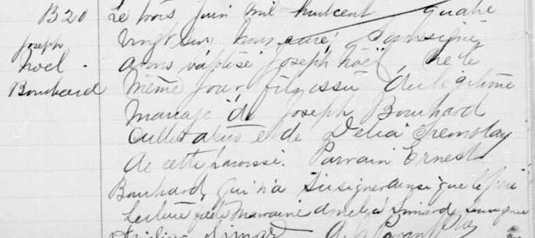 B20 Le trois juin mil huit cent quatre
vingt six nous curé soussigné
Joseph avons baptisé Joseph Noël né le
Noel même jour fils issu du légitime
Bouchard mariage de Joseph Bouchard
Cultivateur et de Délia Tremblay
de cette paroisse. Parrain Ernest
Bouchard, qui n'a su signer ainsi que le père
Lecture faite Marraine Amelia Simard
Simard